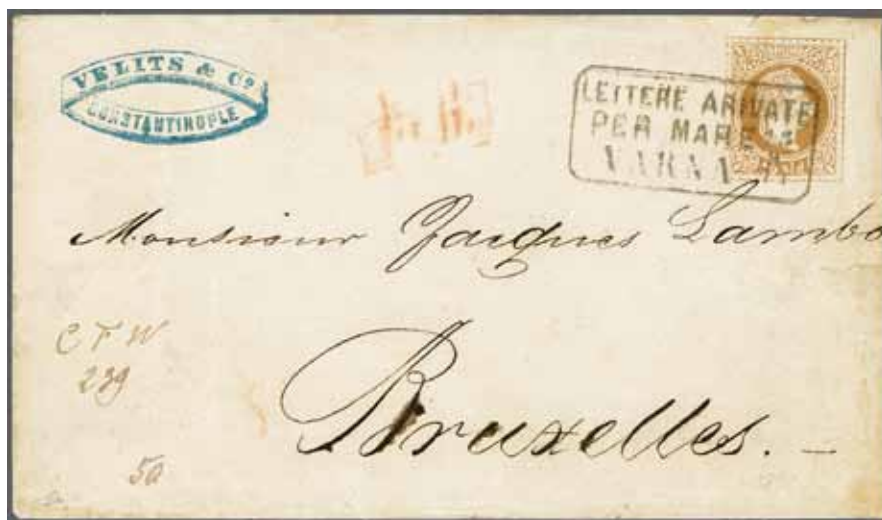 VELITS & Cº
CONSTANTINOPLE
LETTERE ARIVATE
PER MARE
VARNA
Monsieur Jacques Lambo
Bruxelles. —
C F W
239
50